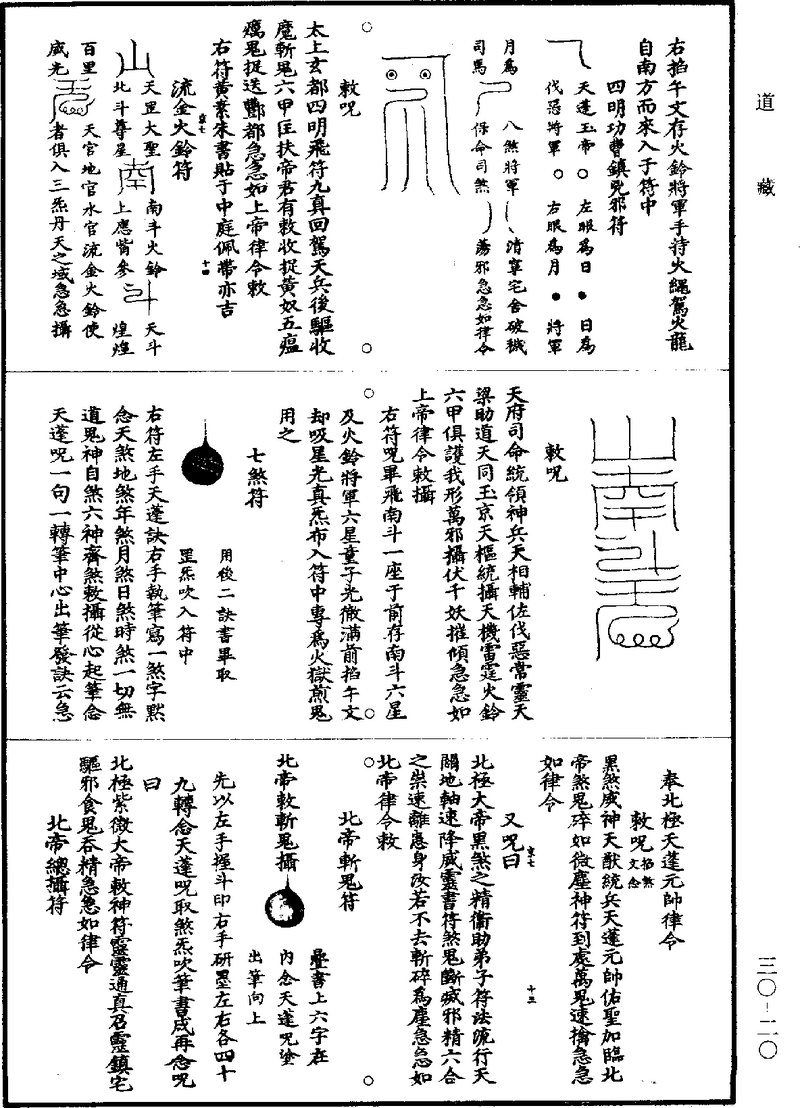 道藏
右掐午文存火鈴將軍手持火繩駕火龍
自南方而來入于符中
四明功曹鎮兇邪符
天蓬玉帝 左眼為日 日為
伐惡將軍 右眼為月 將軍
月為 八煞將軍 清寧宅舍破穢
司馬 保命司煞 蕩邪急急如律令
敕咒
太上玄都四明飛符九真回駕天兵後驅收
魔斬鬼六甲匡扶帝君有敕收捉黃奴五瘟
癘鬼捉送酆都急急如上帝律令敕
右符黃素朱書貼于中庭佩帶亦吉
流金火鈴符
天罡大聖 南斗火鈴 天斗
北斗尊星 上應觜參 煌煌
百里 天官地官水官流金火鈴使
威光 者俱入三炁丹天之域急急攝
敕咒
天府司命統領神兵天相輔佐伐惡常靈天
梁助道天同玉京天樞統攝天機雷霆火鈴
六甲俱護我形萬邪攝伏千妖摧傾急急如
上帝律令敕攝
右符咒畢飛南斗一座于前存南斗六星
及火鈴將軍六星童子光徹滿前掐午文
却吸星光真炁布入符中專為火獄煎鬼
用之
七煞符
用後二訣書畢取
罡炁吹入符中
右符左手天蓬訣右手執筆寫一煞字默
念天煞地煞年煞月煞日煞時煞一切無
道鬼神自煞六神齊煞敕攝從心起筆念
天蓬咒一句一轉筆中心出筆發訣云急
奉北極天蓬元帥律令
敕咒 掐煞文念
黑煞威神天猷統兵天蓬元帥佑聖加臨北
帝煞鬼碎如微塵神符到處萬鬼速擒急急
如律令
又咒曰
北極大帝黑煞之精衛助弟子符法流行天
關地軸速降威靈書符煞鬼斷滅邪精六合
之祟速離患身汝若不去斬碎為塵急急如
北帝律令敕
北帝斬鬼符
北帝敕斬鬼攝
疊書上六字在
內念天蓬咒塗
出筆向上
先以左手握斗印右手研墨左右各四十
九轉念天蓬咒取煞炁吹筆書成再念咒
曰
北極紫微大帝敕神符靈靈通真召靈鎮宅
驅邪食鬼吞精急急如律令
北帝總攝符
三〇-二〇